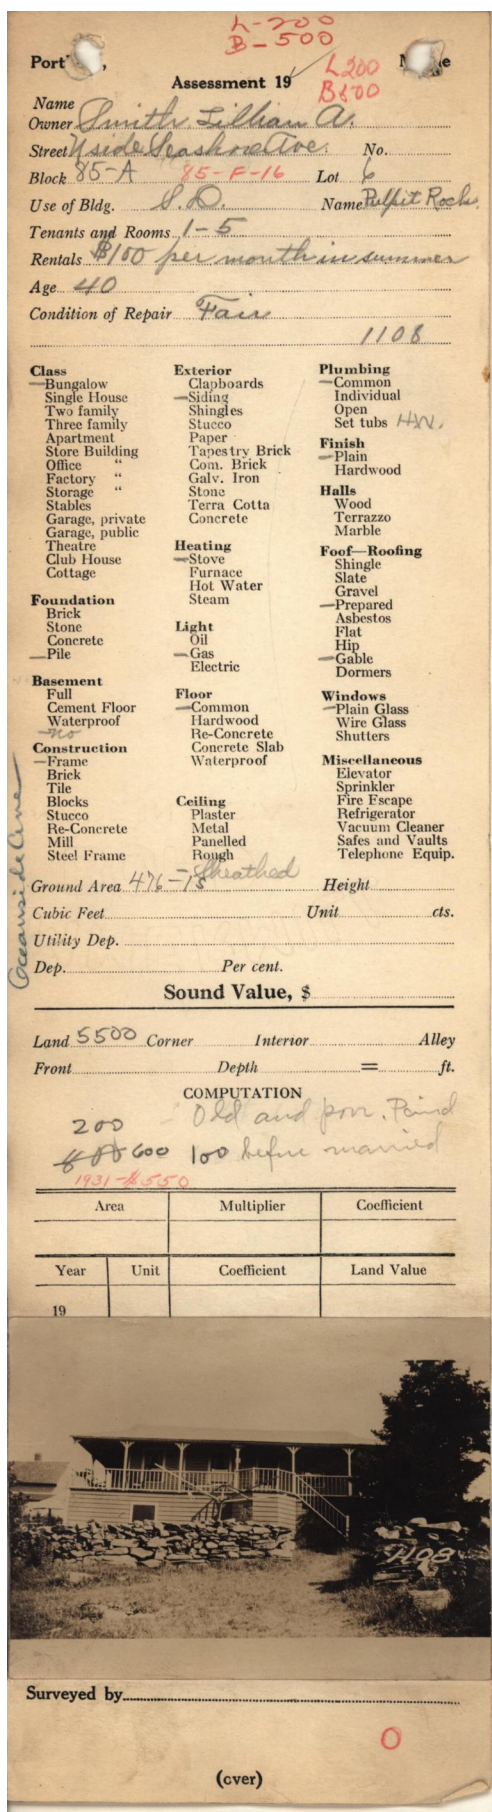 L-200
B-500
Port , M e
Assessment 19
L200
B500
Name
Owner Smith, Lillian A.
Street N side Seashore Ave. No.
Block 85-A 85-F-16 Lot 6
Use of Bldg. S.D. Name Pulpit Rock.
Tenants and Rooms 1-5
Rentals $100 per month in summer
Age 40
Condition of Repair Fair
1108
Class
Bungalow
Single House
Two family
Three family
Apartment
Store Building
Office "
Factory "
Storage "
Stables
Garage, private
Garage, public
Theatre
Club House
Cottage
Foundation
Brick
Stone
Concrete
Pile
Basement
Full
Cement Floor
Waterproof
no
Construction
Frame
Brick
Tile
Blocks
Stucco
Re-Concrete
Mill
Steel Frame
Exterior
Clapboards
Siding
Shingles
Stucco
Paper
Tapestry Brick
Com. Brick
Galv. Iron
Stone
Terra Cotta
Concrete
Heating
Stove
Furnace
Hot Water
Steam
Light
Oil
Gas
Electric
Floor
Common
Hardwood
Re-Concrete
Concrete Slab
Waterproof
Ceiling
Plaster
Metal
Panelled
Rough
Sheathed
Plumbing
Common
Individual
Open
Set tubs H.W.
Finish
Plain
Hardwood
Halls
Wood
Terrazzo
Marble
Foof—Roofing
Shingle
Slate
Gravel
Prepared
Asbestos
Flat
Hip
Gable
Dormers
Windows
Plain Glass
Wire Glass
Shutters
Miscellaneous
Elevator
Sprinkler
Fire Escape
Refrigerator
Vacuum Cleaner
Safes and Vaults
Telephone Equip.
Oceanside Ave
Ground Area 476-1s Height
Cubic Feet Unit cts.
Utility Dep.
Dep. Per cent.
Sound Value, $
Land 5500 Corner Interior Alley
Front Depth = ft.
COMPUTATION
200 Old and poor. Paid
600 100 before married
1931-$550
Area Multiplier Coefficient
Year Unit Coefficient Land Value
19
1108
Surveyed by
O
(over)